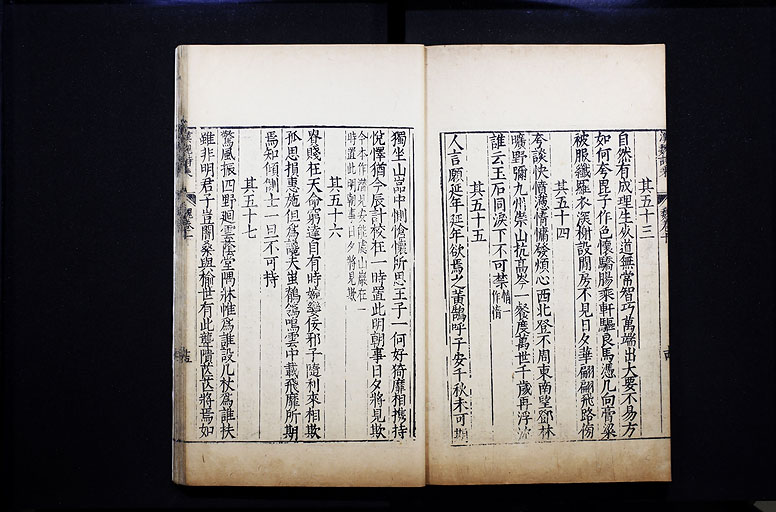 其五十三
自然有成理生死道無常智巧萬端出大要不易方
如何夸毘子作色懷驕腸乘軒驅良馬憑几向膏粱
被服纖羅衣深榭設閒房不見日夕華翩翩飛路傍
其五十四
夸談快憤懣情慵發煩心西北登不周東南望鄧林
曠野彌九州崇山抗高岑一餐度萬世千歲再浮沉
誰云玉石同淚下不可禁情一作惰
其五十五
人言願延年延年欲焉之黃鵠呼子安千秋未可期
獨坐山嵓中惻愴懷所思王子一何好猗靡相攜持
悅懌猶今辰計校在一時置此明朝事日夕將見欺
時置此明朝事日夕將見欺
其五十六
貴賤在天命窮達自有時婉孌佞邪子隨利來相欺
孤思損惠施但為讒夫蚩鶺鴒鳴雲中載飛靡所期
焉知傾側士一旦不可持
其五十七
驚風振四野廻雲蔭堂隅牀帷為誰設几杖為誰扶
雖非明君子豈闇桑與榆世有此聾聵茫茫將焉如